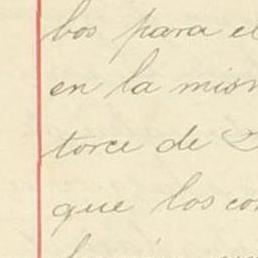 bos para el
en la mism
torce de
que los con